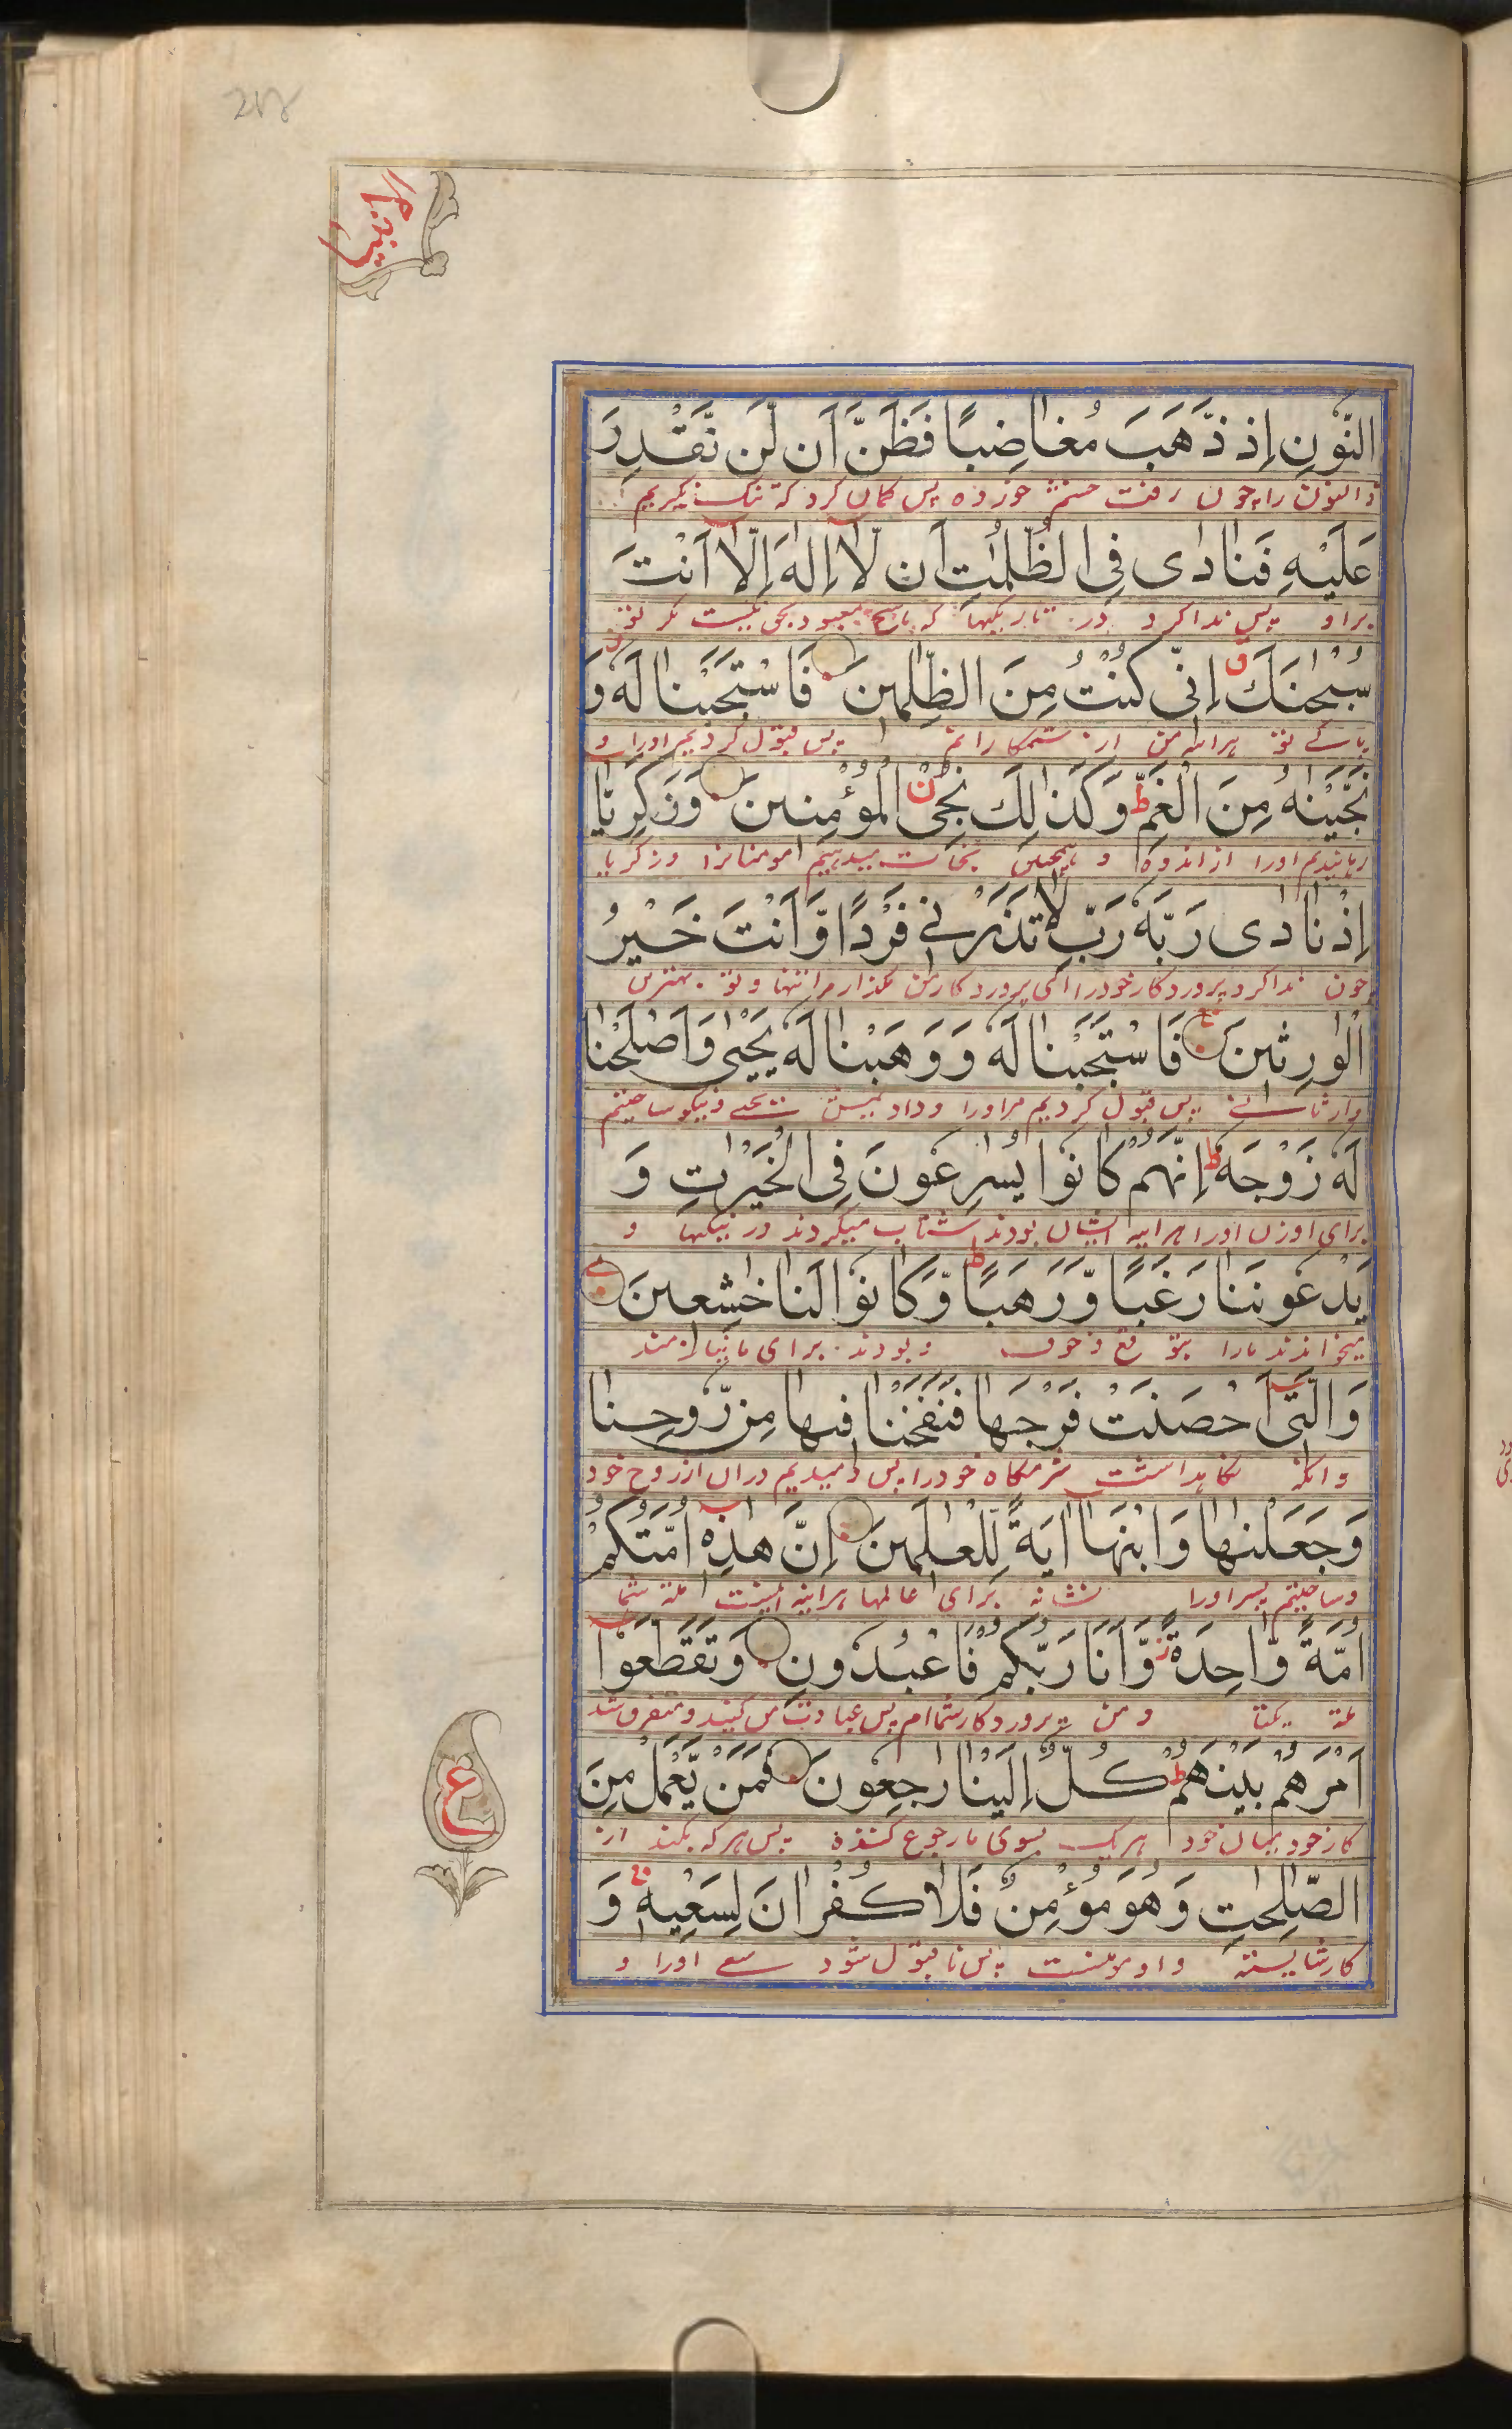 النُّونِ إِذ ذَّهَبَ مُغَاضِبًا فَظَنَّ أَن لَّن نَّقْدِرَ
ذالنون را چون رفت خشم خورده پس کمان کرد که تنک نکیریم
عَلَيْهِ فَنَادٰى فِى الظُّلُمٰتِ أَن لَّا إِلٰهَ إِلَّا أَنْتَ
براو پس ندا کرد در تاریکیها که نیست مکر تو
سُبْحٰنَكَ إِنِّى كُنْتُ مِنَ الظّٰلِمِينَ فَاسْتَجَبْنَا لَهٗ وَ
پاکے تو من از ستمکارانم پس قبول کردیم اورا و
نَجَّيْنٰهُ مِنَ الْغَمِّ ط وَكَذٰلِكَ نُنْجِى الْمُؤْمِنِينَ وَزَكَرِيَّا
رهانیدیم اورا از اندوه و همچنین نجات میدهیم مومنانرا و زکریا
إِذْ نَادٰى رَبَّهٗ رَبِّ لَا تَذَرْنِے فَرْدًا وَّأَنْتَ خَيْرُ
چون ندا کرد پروردکار خودرا ای پروردکار من مکذار مرا تنها و تو بهترین
الْوٰرِثِينَ فَاسْتَجَبْنَا لَهٗ وَوَهَبْنَا لَهٗ يَحْيٰى وَأَصْلَحْنَا
پس قبول کردیم مراورا و دادیمش یحیے و نیکو ساختیم
لَهٗ زَوْجَهٗ ط إِنَّهُمْ كَانُوا يُسٰرِعُونَ فِى الْخَيْرٰتِ وَ
برای او زن اورا هراینه ایشان بودند شتاب میکردند در نیکیها و
يَدْعُونَنَا رَغَبًا وَّرَهَبًا ط وَّكَانُوا لَنَا خٰشِعِينَ
میخواندند مارا بتوقع و خوف و بودند برای ما نیازمند
وَالَّتِى أَحْصَنَتْ فَرْجَهَا فَنَفَخْنَا فِيهَا مِن رُّوحِنَا
وانکه نکاهداشت شرمکاه خودرا پس دمیدیم دران از روح خود
وَجَعَلْنٰهَا وَابْنَهَا اٰيَةً لِّلْعٰلَمِينَ إِنَّ هٰذِهٖ أُمَّتُكُمْ
وساختیم پسر اورا نشانه برای عالمها هراینه اینست ملة شما
أُمَّةً وَّاحِدَةً ز وَّأَنَا رَبُّكُمْ فَاعْبُدُونِ وَتَقَطَّعُوا
ملة یکتا و من پروردکار شماام پس عبادت من کنید و متفرق شد
أَمْرَهُمْ بَيْنَهُمْ ط كُلٌّ إِلَيْنَا رَاجِعُونَ فَمَنْ يَّعْمَلْ مِنَ
کار خود میان خود هریک بسوی ما رجوع کننده پس هرکه بکند از
الصّٰلِحٰتِ وَهُوَ مُؤْمِنٌ فَلَا كُفْرَانَ لِسَعْيِهٖ وَ
کار شایسته و او مومنست پس نا قبول شود سعے اورا و
ع